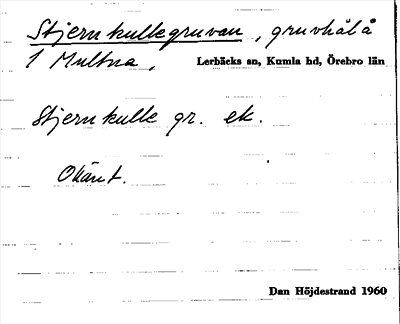 Stjernkullegruvan, gruvhål å
1 Multna, Lerbäcks sn, Kumla hd, Örebro län
Stjernkulle gr. ek.
Okänt.
Dan Höjdestrand 1960